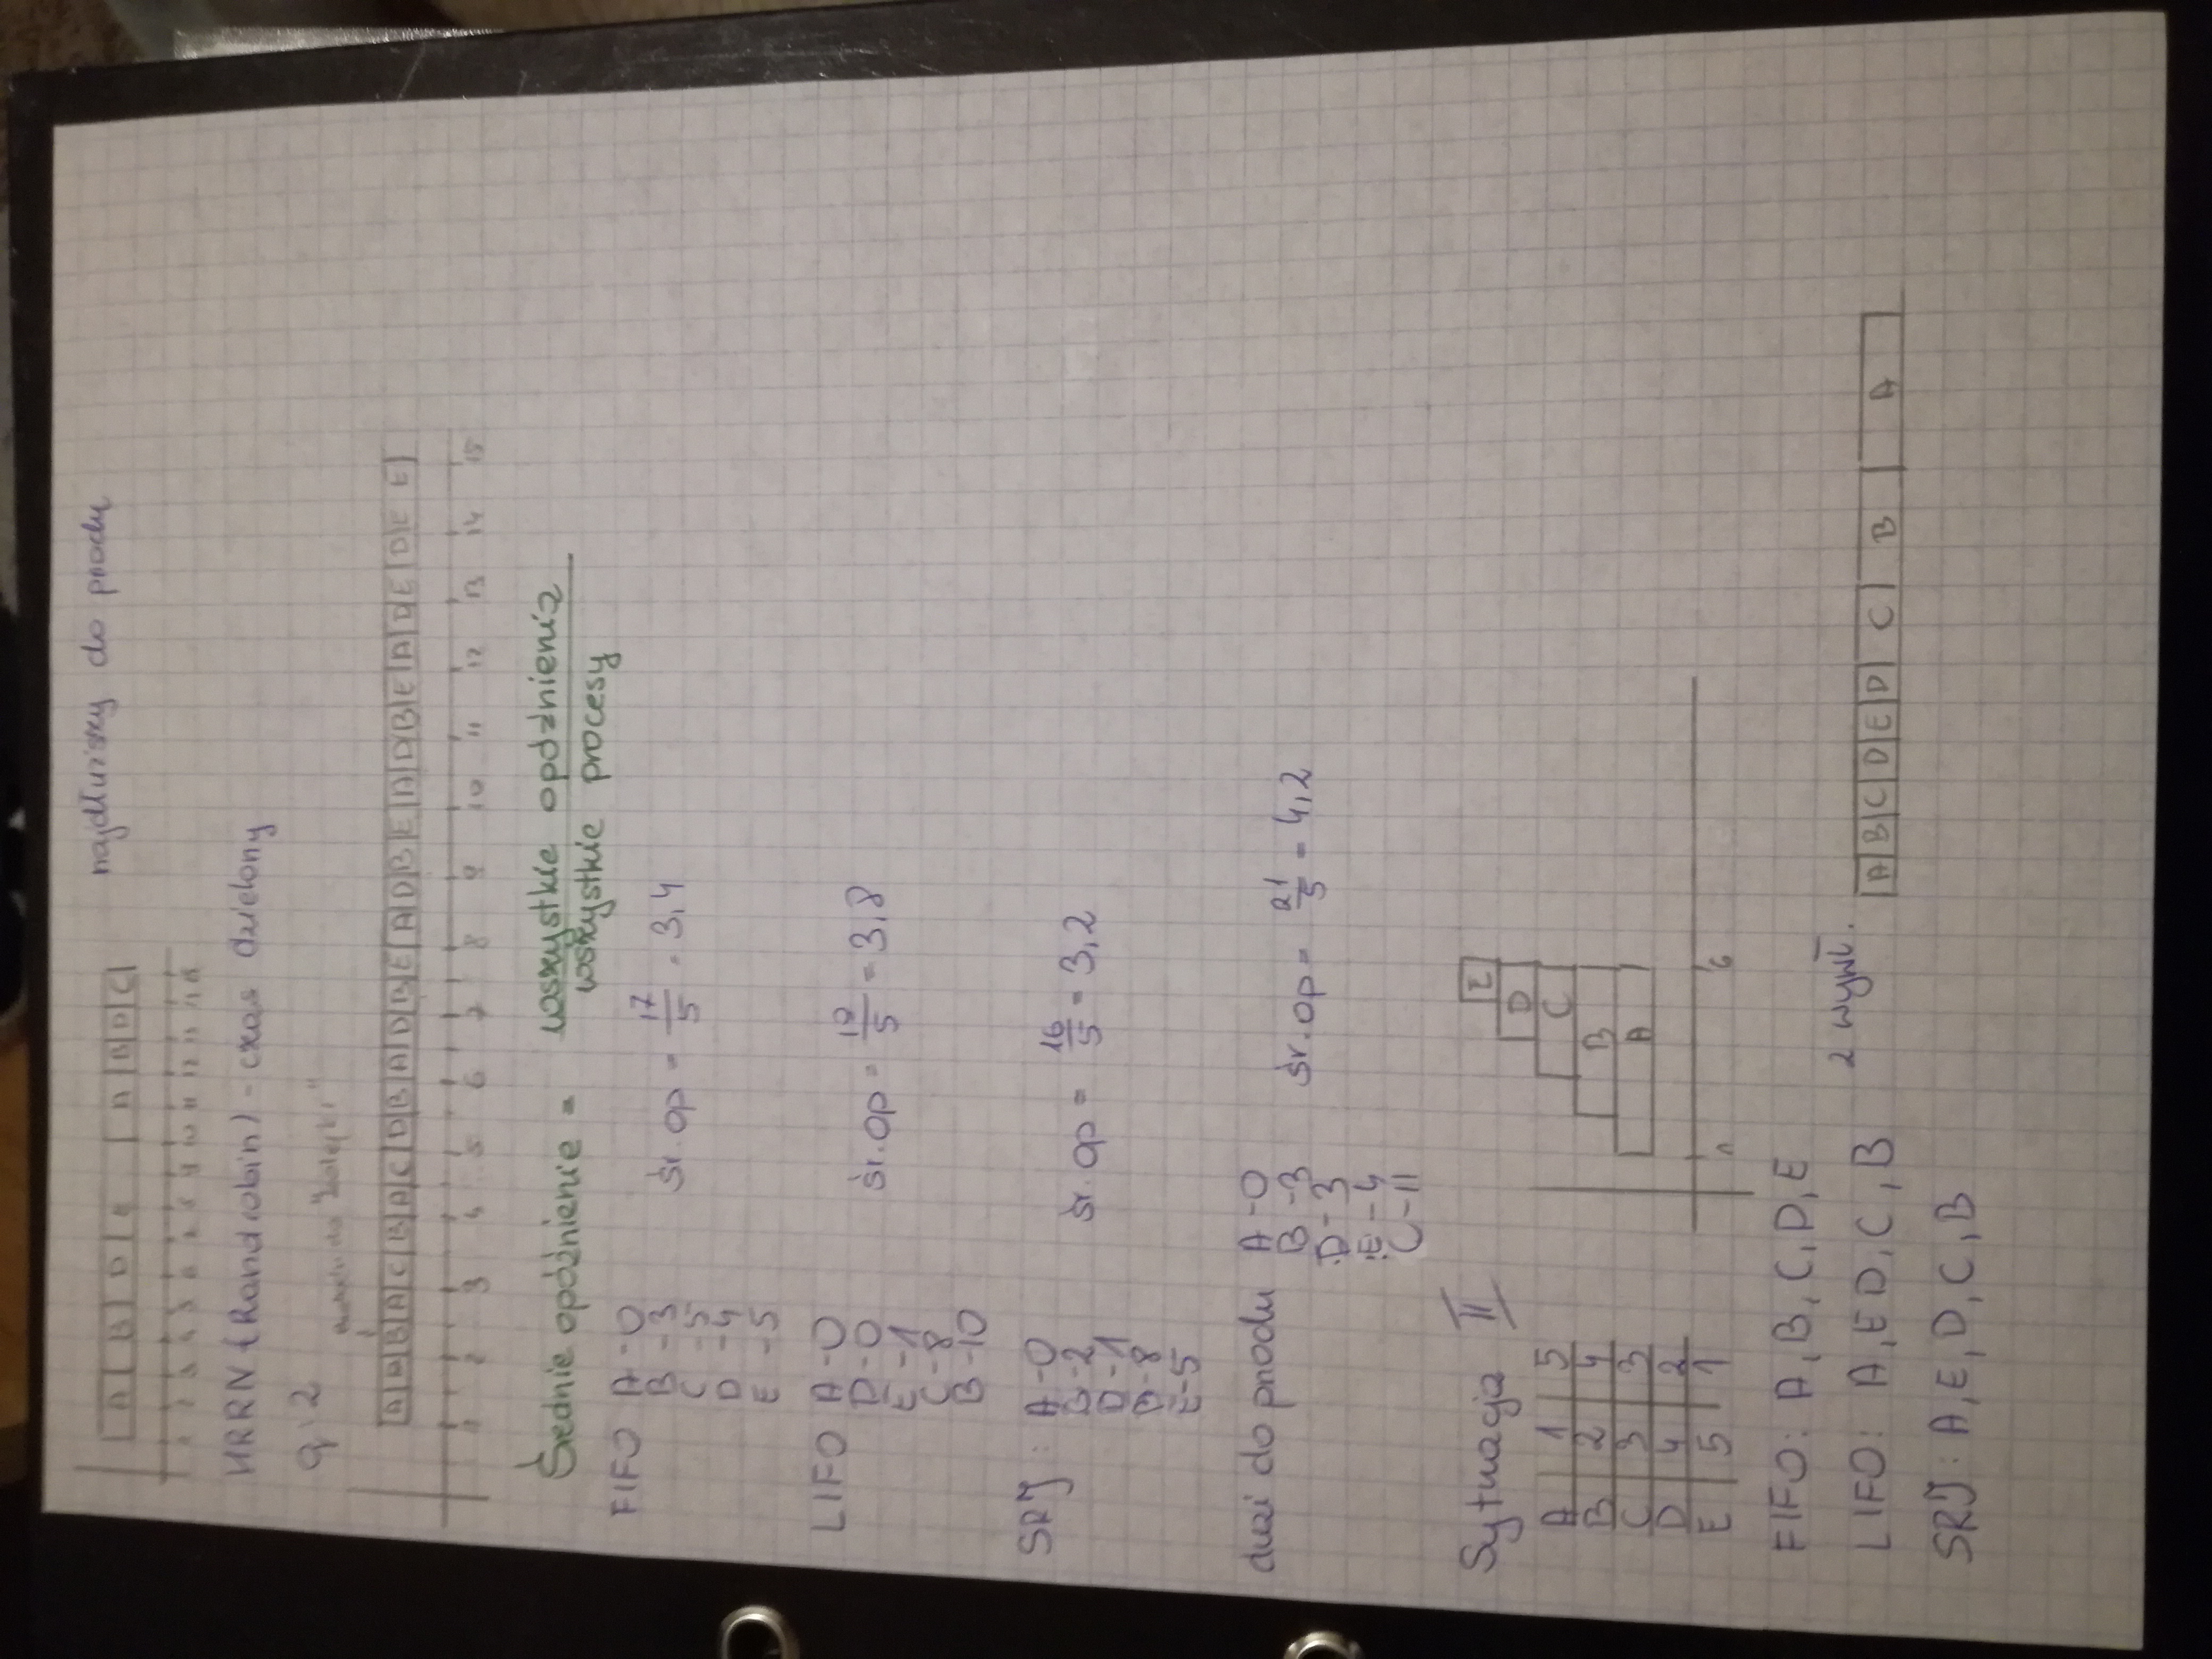 najdłuższy do przodu
A B D A B D C
HRRN (Rand robin) - czas dzielony
q, 2
A B B A C B A C D B A D B E A D B E A D B E A D E D E E
2 3 4 5 6 7 8 9 10 11 12 13 14 15
Średnie opóźnienie = wszystkie opdznienia
wszystkie procesy
FIFO A - 0
B - 3
C - 5
D - 4
E - 5
śr. op = 17/5 = 3,4
LIFO A - 0
D - 0
E - 1
C - 8
B - 10
śr. op = 19/5 = 3,8
SRJ: A - 0
B - 2
D - 1
D - 8
E - 5
śr. op = 16/5 = 3,2
duzi do przodu A - 0
B - 3
D - 3
E - 4
C - 11
śr. op = 21/5 = 4,2
Sytuacja II
A 1 5
B 2 4
C 3 3
D 4 2
E 5 1
E
D
C
B
A
1 6
FIFO: A, B, C, D, E
LIFO: A, E D, C, B
2 wywł. A B C D E D C B A
SRJ: A, E, D, C, B